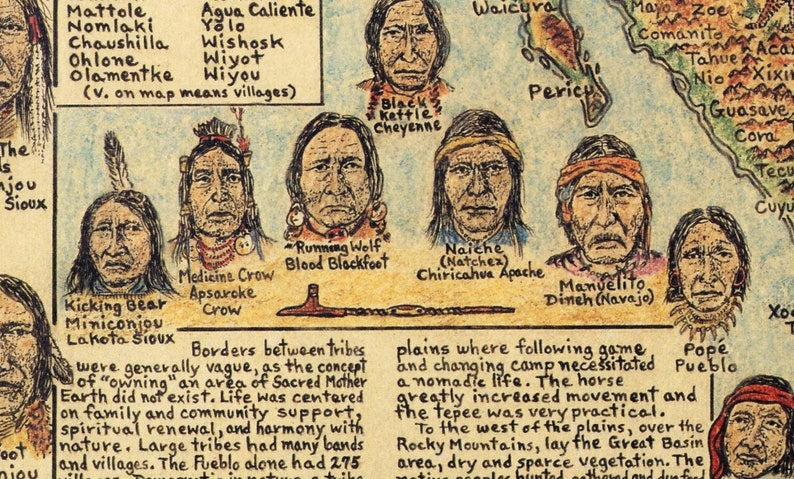 Mattole
Nomlaki
Chaushilla
Ohlone
Olamentke
Agua Caliente
Yolo
Wishosk
Wiyot
Wiyou
(V. on map means villages)
Black
Kettle
Cheyenne
Waicura
Pericu
Mayo Zoe
Comanito
Tahue
Nio
Xixim
Guasave
Cora
The
Sioux
Kicking Bear
Miniconjou
Lakota Sioux
Medicine Crow
Apsaroke
Crow
"Running Wolf
Blood Blackfoot
Naiche
(Natchez)
Chiricahua Apache
Manuelito
Dineh (Navajo)
Popé
Pueblo
Borders between tribes
were generally vague, as the concept
of "owning" an area of Sacred Mother
Earth did not exist. Life was centered
on family and community support,
spiritual renewal, and harmony with
nature. Large tribes had many bands
and villages. The Pueblo alone had 275
plains where following game
and changing camp necessitated
a nomadic life. The horse
greatly increased movement and
the tepee was very practical.
To the west of the plains, over the
Rocky Mountains, lay the Great Basin
area, dry and sparce vegetation. The